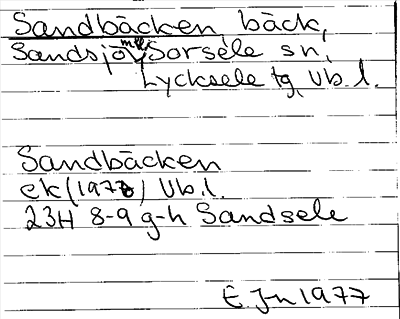 Sandbäcken, bäck,
Sandsjö, Sorsele sn,
Lycksele tg, Vb. l.
Sandbäcken
ek (1978) Vb. l.
23H 8-9 g-h Sandsele
E. J-n 1977